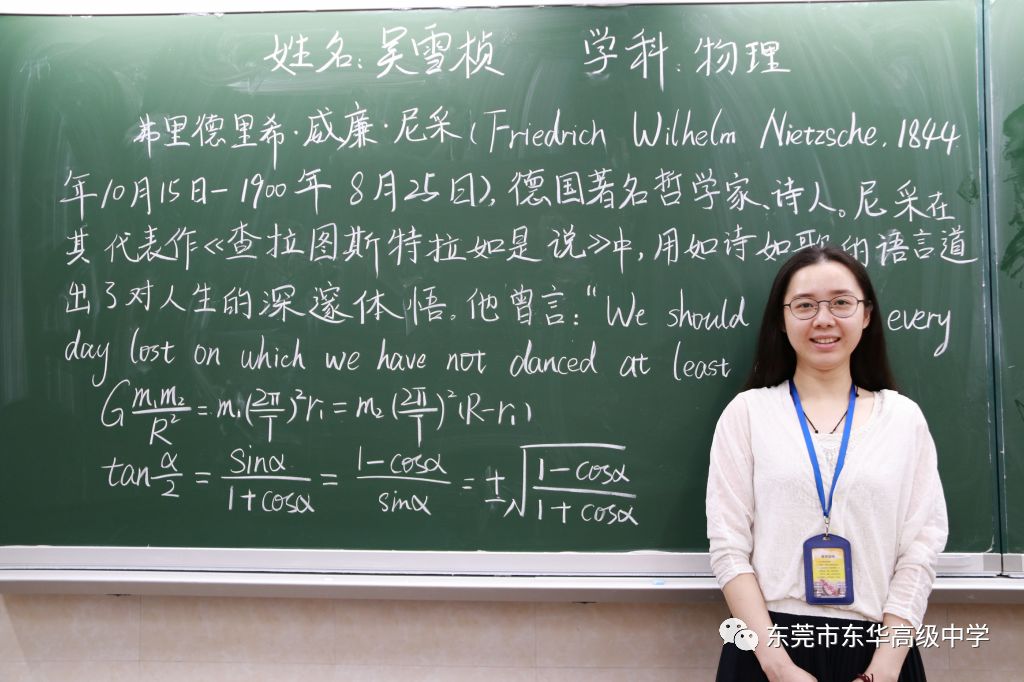 姓名：吴雪桢 学科：物理
弗里德里希·威廉·尼采（Friedrich Wilhelm Nietzsche，1844
年10月15日－1900年8月25日），德国著名哲学家、诗人。尼采在
其代表作《查拉图斯特拉如是说》中，用如诗如歌的语言道
出了对人生的深邃体悟。他曾言：“We should every
day lost on which we have not danced at least
G m₁m₂/R² = m₁(2π/T)²r₁ = m₂(2π/T)²(R-r₁)
tan α/2 = sinα/(1+cosα) = (1-cosα)/sinα = ±√((1-cosα)/(1+cosα))
东莞市东华高级中学